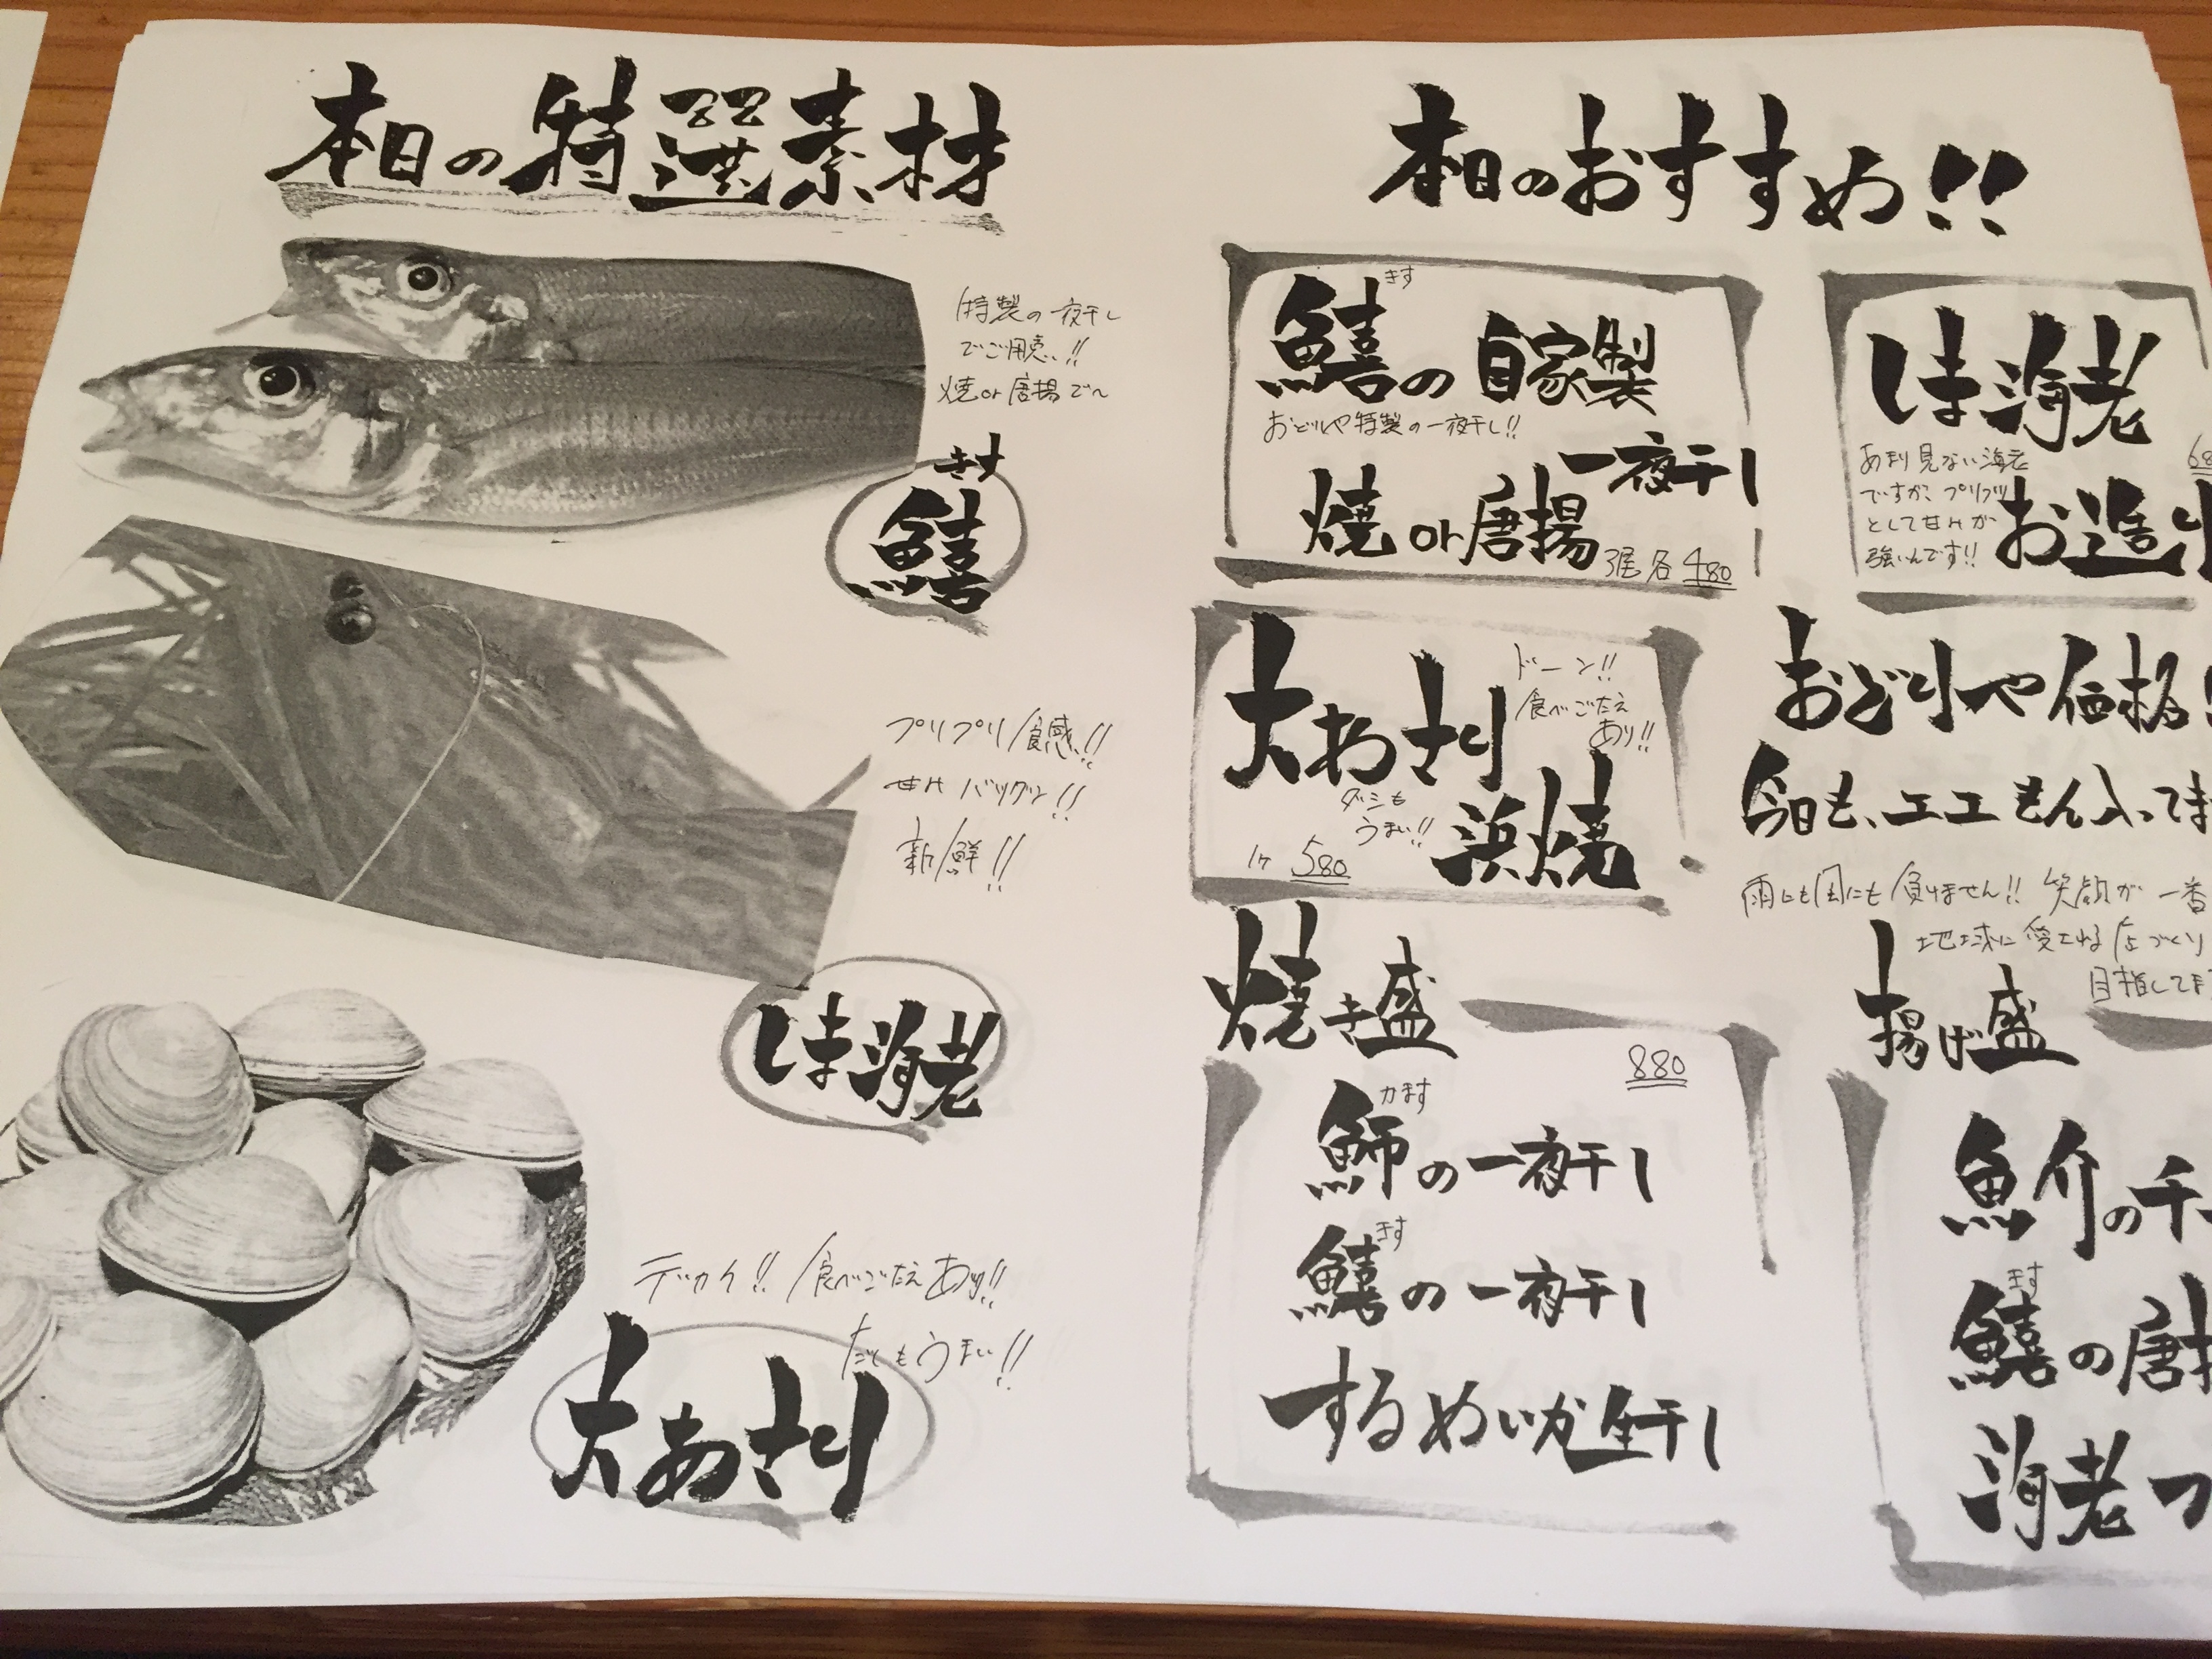 本日の特選素材
特製の一夜干し
でご用意!!
焼or唐揚で〜
きす
鱚
プリプリ食感!!
甘みバツグン!!
新鮮!!
しま海老
デッカイ!! 食べごたえあり!!
だしもうまい!!
大あさり
本日のおすすめ!!
きす
鱚の自家製
おどりや特製の一夜干し!!
一夜干し
焼or唐揚
2尾 各480
大あさり
ドーン!!
食べごたえ
あり!!
ダシも
うまい!!
浜焼
1ケ 580
焼き盛
880
かます
魳の一夜干し
きす
鱚の一夜干し
するめいか生干し
しま海老
あまり見ない海老
ですが、プリプリ
として甘みが
強いんです!!
お造り
おどりや価格!
今日も、エエもん入ってま
雨にも風にも負けません!! 笑顔が一番
地球に愛される店づくり
目指してま
揚げ盛
魚介の
きす
鱚の唐揚
海老